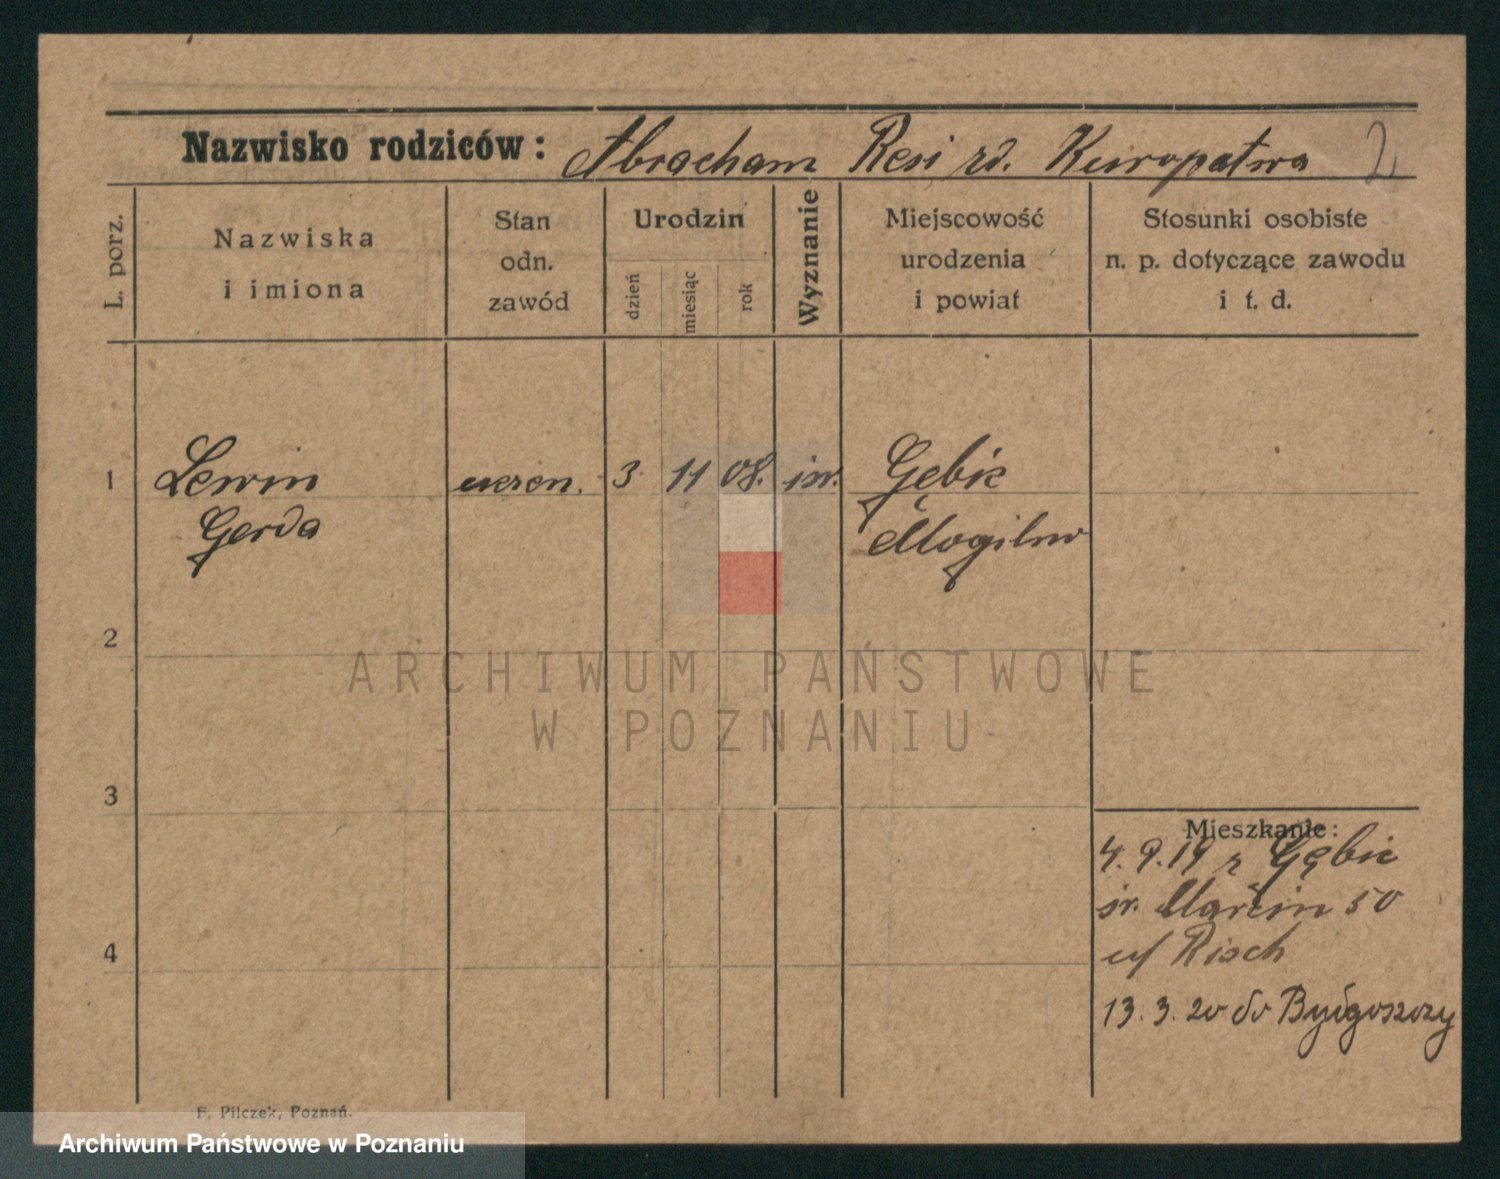 Nazwisko rodziców: Abracham Resi rd. Kuropatwa 2
L. porz.
Nazwiska i imiona
Stan odn. zawód
Urodzin
dzień
miesiąc
rok
Wyznanie
Miejscowość urodzenia i powiat
Stosunki osobiste n. p. dotyczące zawodu i t. d.
1 Lewin uczen. 3 11 08. izr. Gębic
Gerda Mogilno
2
ARCHIWUM PAŃSTWOWE
W POZNANIU
3
Mieszkanie:
4. 9. 19 z Gębic
św. Marcin 50
4
u/ Risch
13. 3. 20 do Bydgoszczy
F. Pilczek, Poznań.
Archiwum Państwowe w Poznaniu